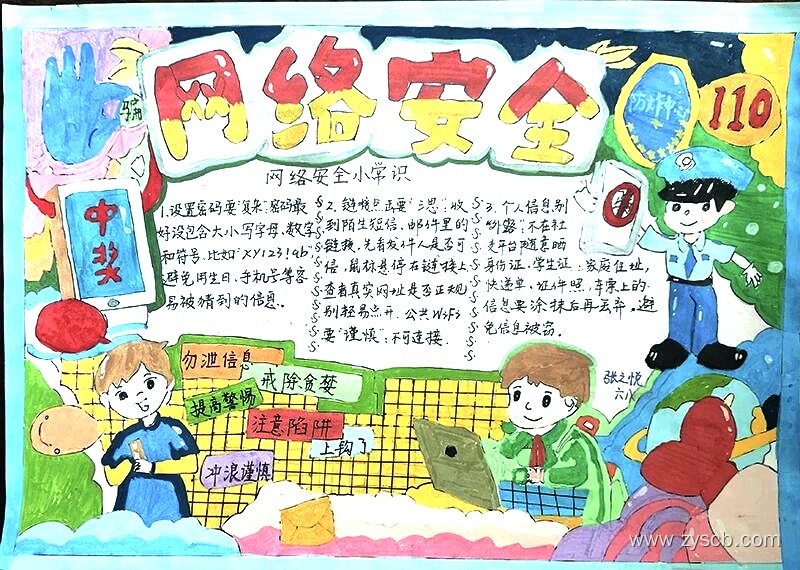 网络安全
骗
防炸中心
110
网络安全小学识
中奖
1.设置密码要"复杂":密码最
好设包含大小写字母、数字
和符号,比如"XY123!ab"
避免用生日、手机号等容
易被猜到的信息。
2.链接点击要"三思":收
到陌生短信、邮件里的
链接,先看发件人是否可
信,鼠标悬停在链接上
查看真实网址是否正规
别轻易点开.公共WiFi
要"谨慎":不可连接.
3.个人信息别
"外露":不在社
交平台随意晒
身份证、学生证、家庭住址,
快递单、证件照,车票上的
信息要涂抹后再丢弃。避
免信息被窃.
张之悦
六八
勿泄信息
戒除贪婪
提高警惕
注意陷阱
上钩了
冲浪谨慎
www.zyscb.com